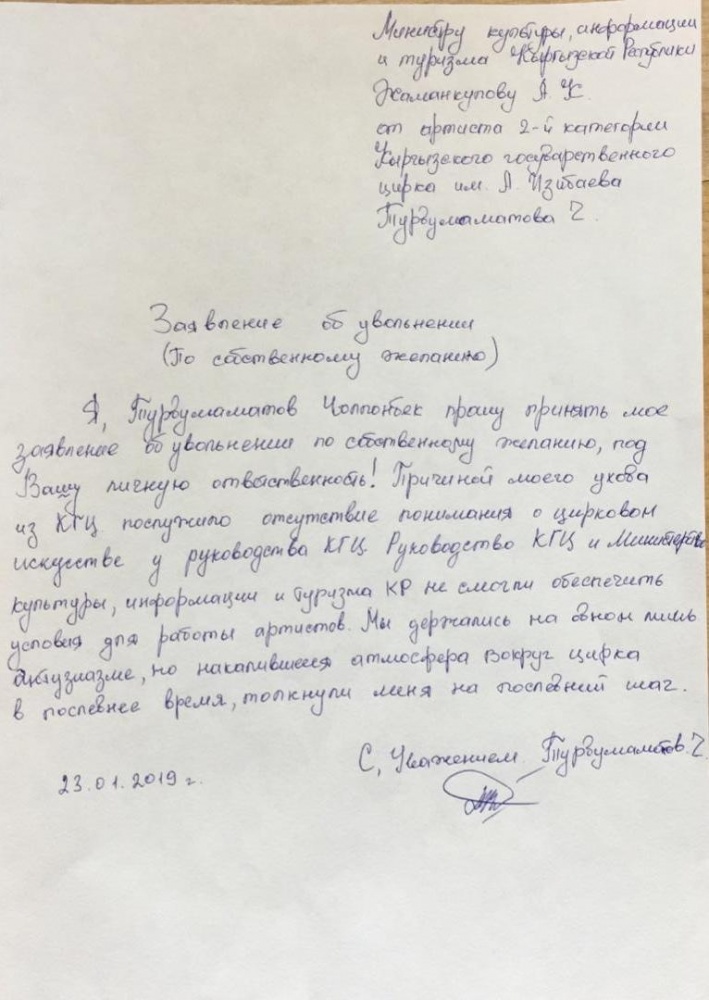 Министру культуры, информации
и туризма Кыргызской Республики
Жаманкулову А. К.
от артиста 2-й категории
Кыргызского государственного
цирка им. А. Изибаева
Турдумаматова Ч.
Заявление об увольнении
(По собственному желанию)
Я, Турдумаматов Чолпонбек прашу принять мое
заявление об увольнении по собственному желанию, под
Вашу личную ответственность! Причиной моего ухода
из КГЦ послужило отсутствие понимания о цирковом
искусстве у руководства КГЦ. Руководство КГЦ и Министерство
культуры, информации и туризма КР не смогли обеспечить
условия для работы артистов. Мы держались на одном лишь
энтузиазме, но накалившееся атмосфера вокруг цирка
в последнее время, толкнули меня на последний шаг.
С, Уважением Турдумаматов. Ч.
23.01.2019 г.